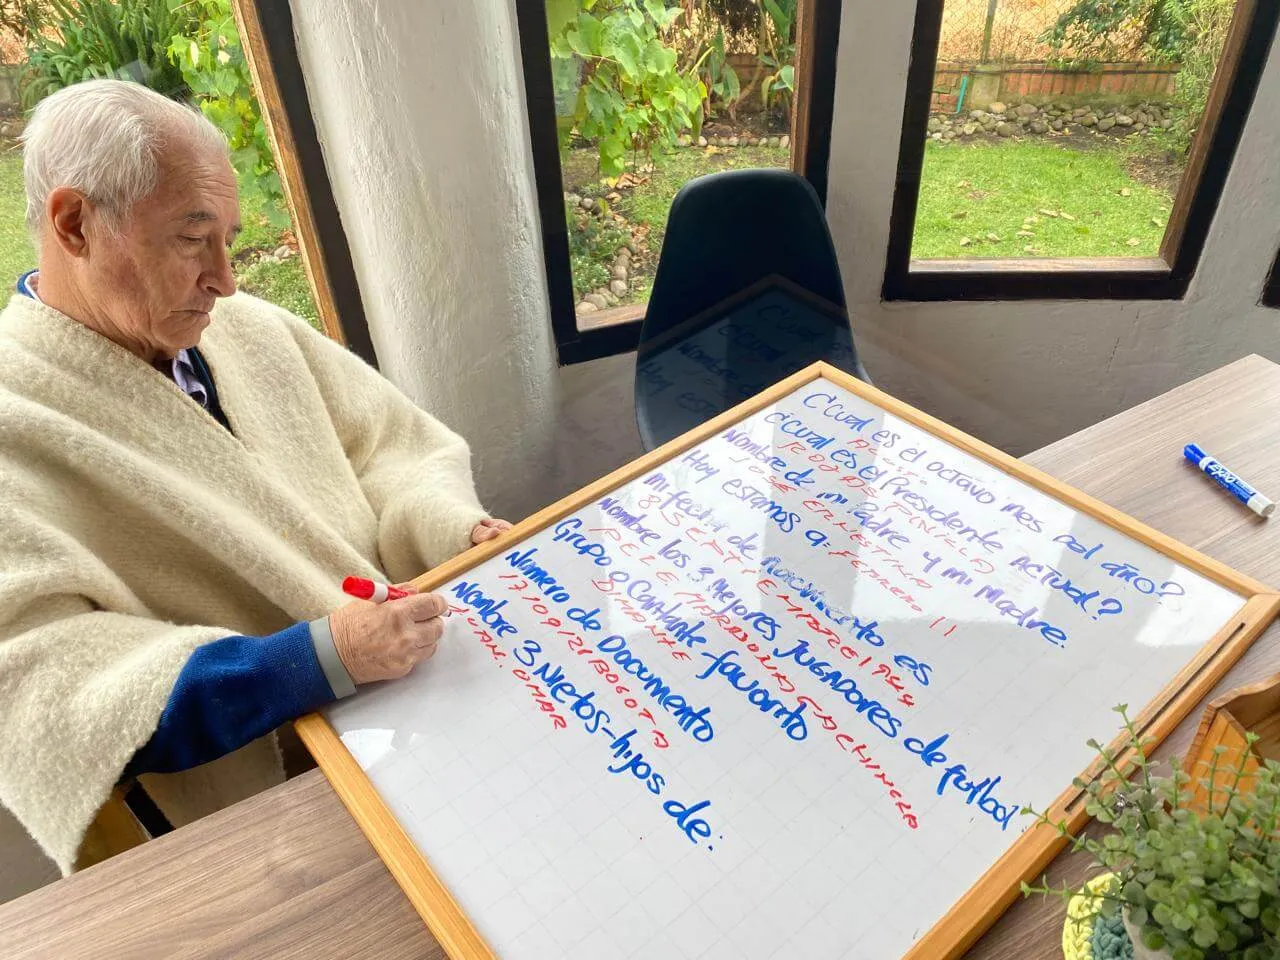 ¿Cual es el octavo mes del año?
AGOSTO
¿Cual es el Presidente actual?
ROJAS PINILLA
Nombre de mi Padre y mi Madre.
JOSE ERNESTINA
Hoy estamos a: FEBRERO 11
mi fecha de nacimiento es
8 SEPTIEMBRE 1944
Nombre los 3 Mejores JUGADORES de futbol
PELE MARADONA
Grupo o Cantante favorito
DIMANTE
Número de Documento
BOGOTA
Nombre 3 Nietos-hijos de:
JUAN. OMAR
EXPO